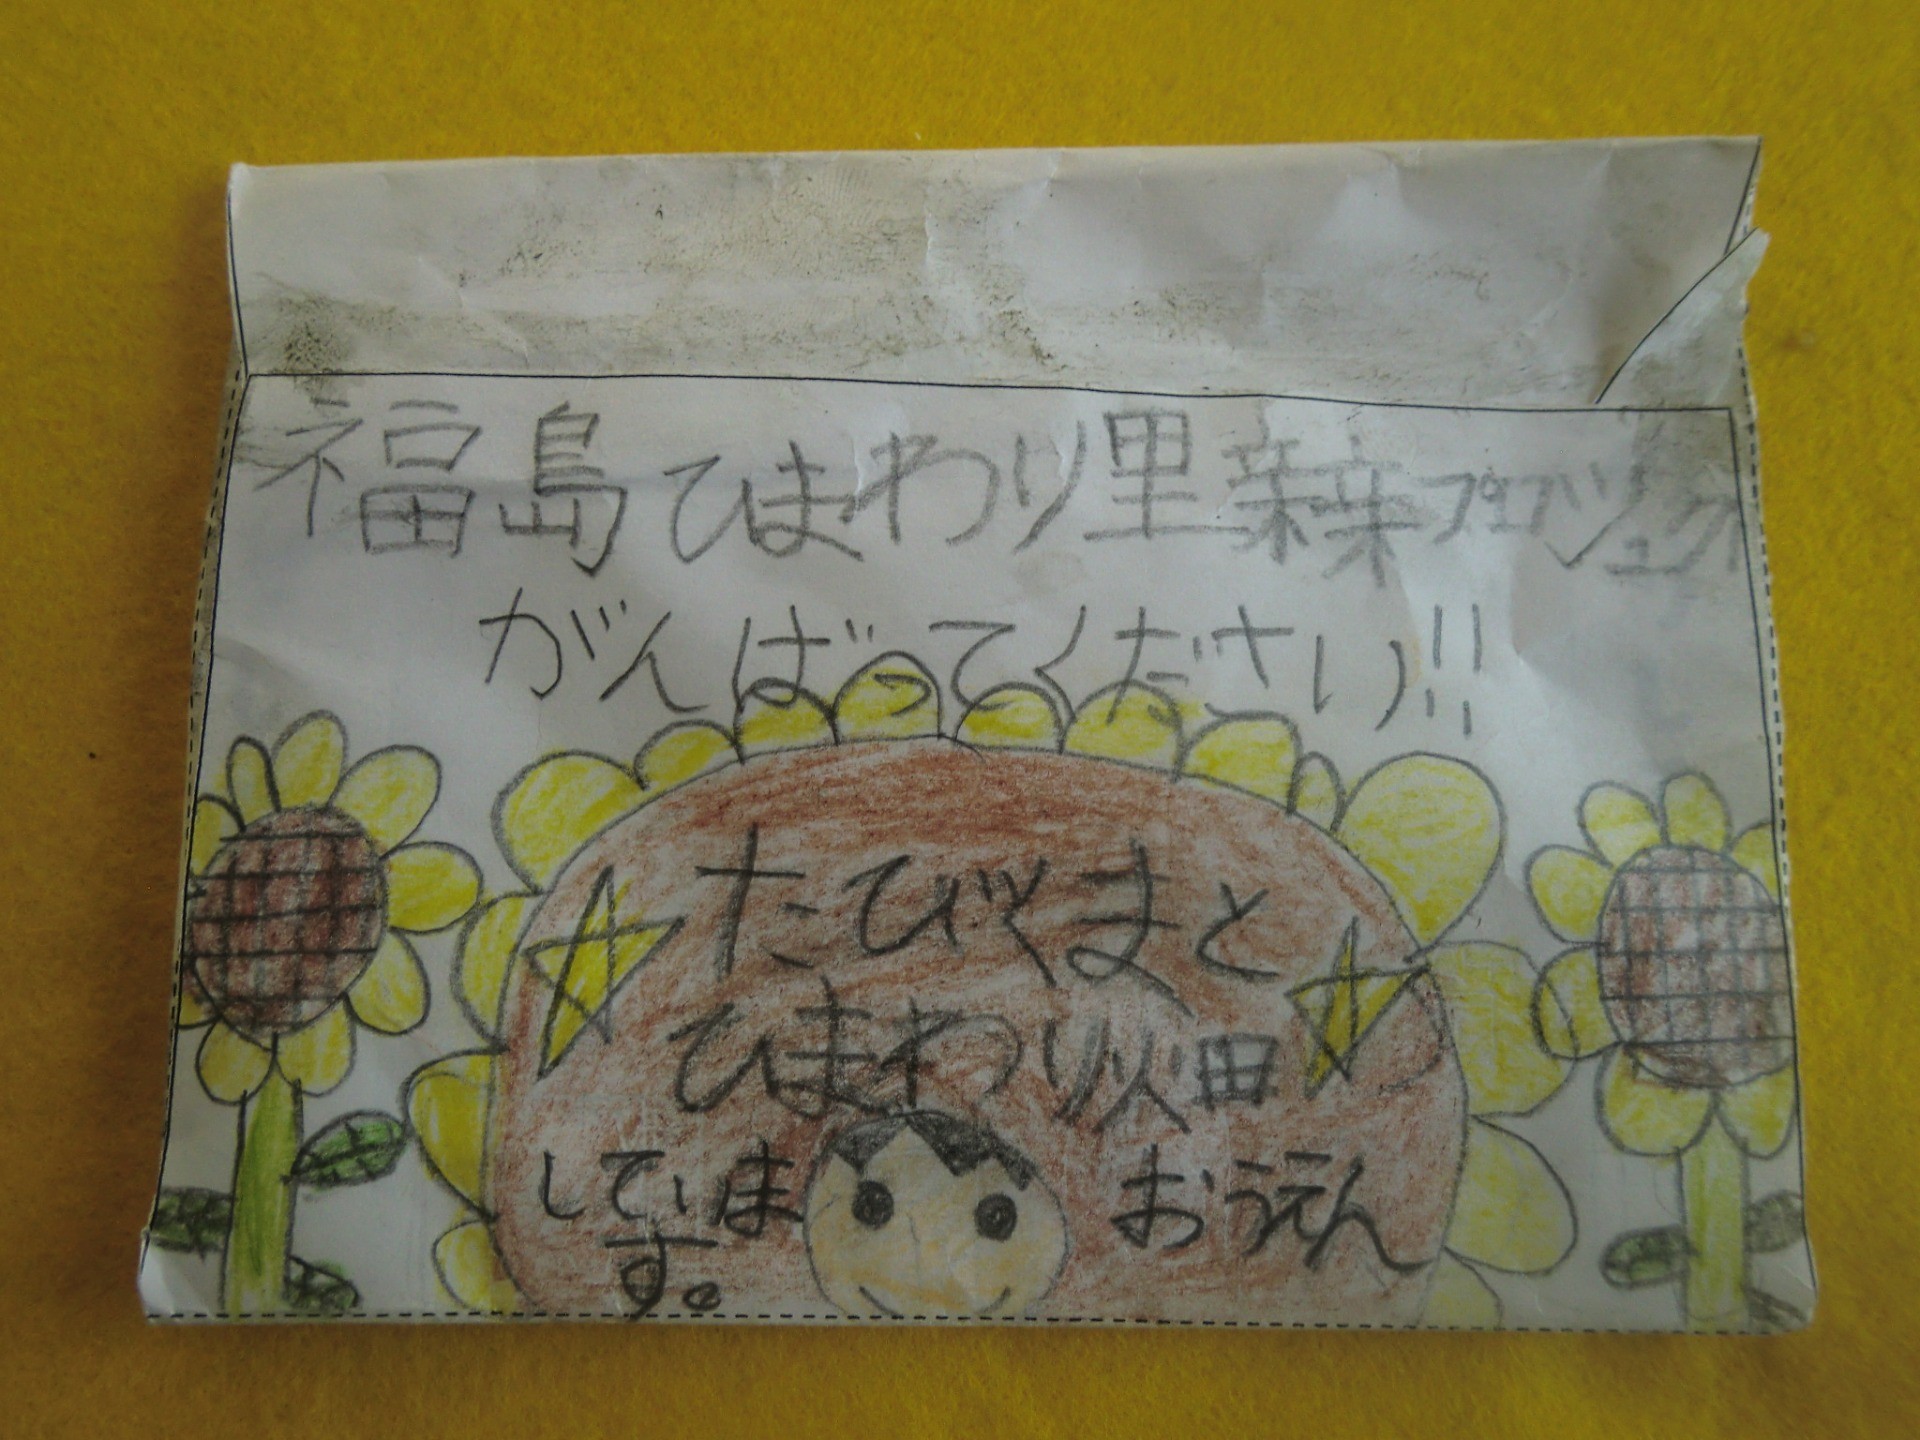 福島ひまわり里親プロジェクト
がんばってください!!
たびくまと
ひまわり畑
おうえん
していま
す。